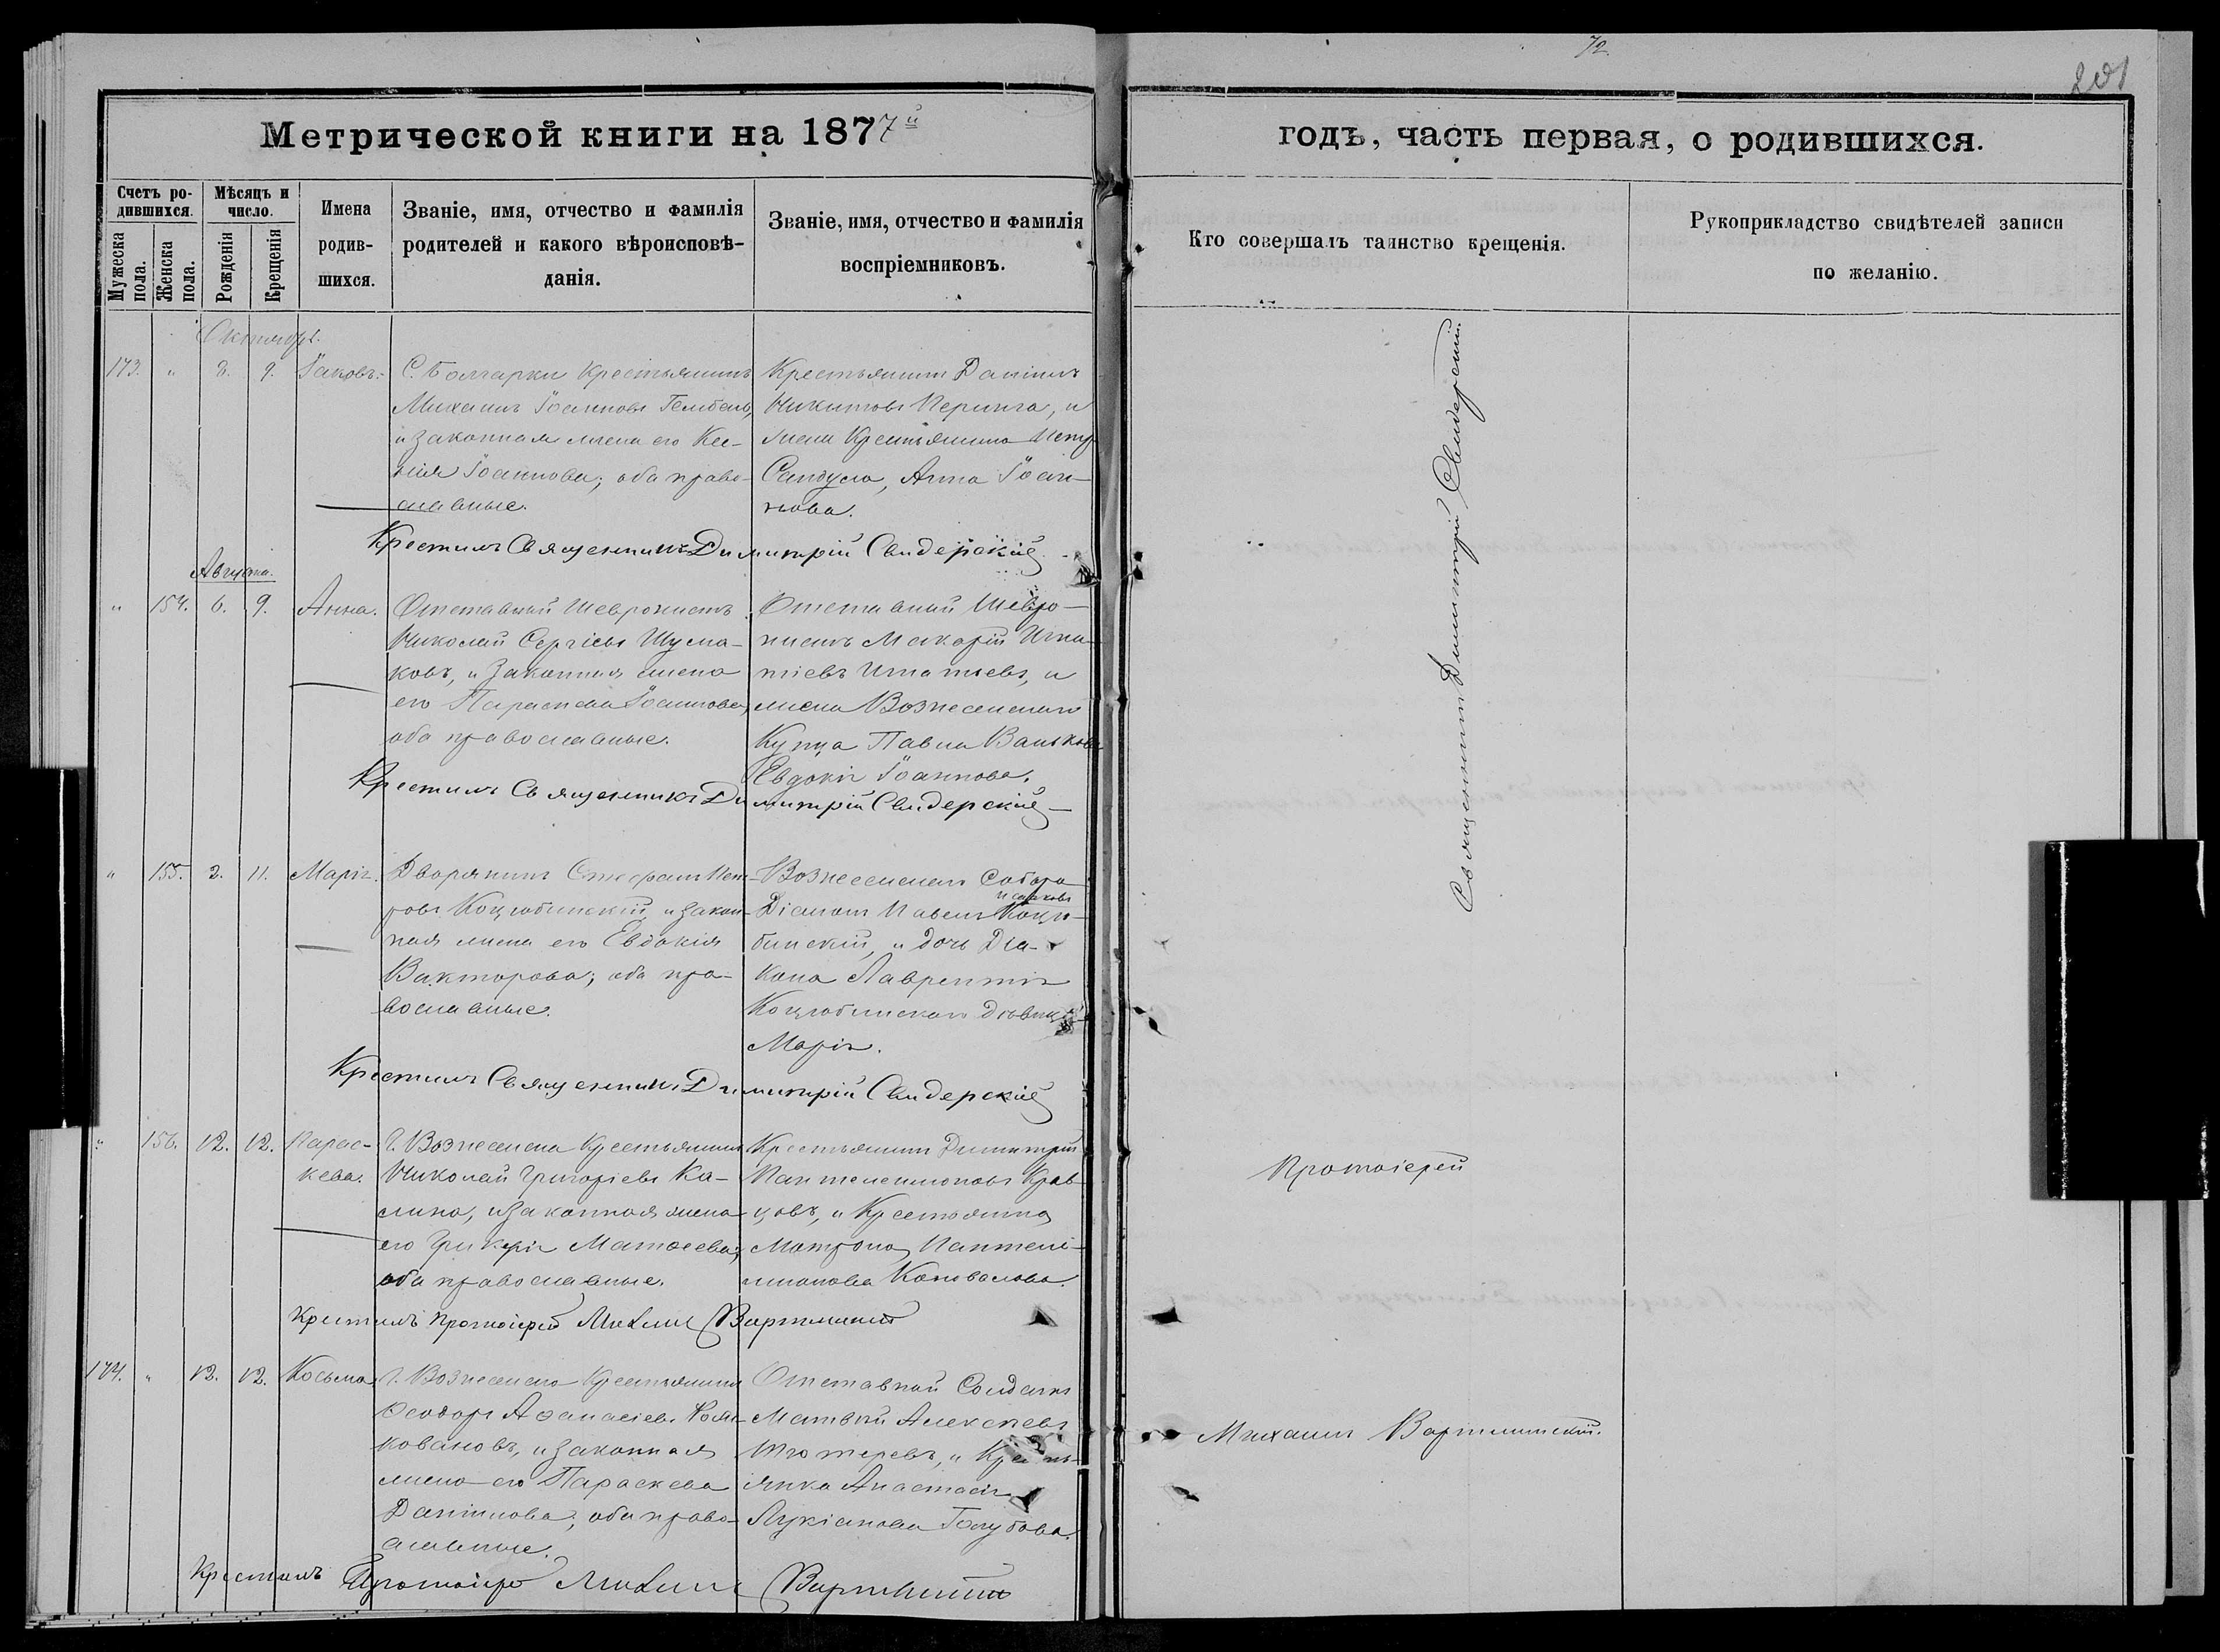 72.
201
Метрической книги на 1877й
годъ, часть первая, о родившихся.
Счетъ ро-
дившихся.
Мужеска пола.
Женска пола.
Мѣсяцъ и
число.
Рожденія
Крещенія
Имена
родив-
шихся.
Званіе, имя, отчество и фамилія
родителей и какого вѣроисповѣ-
данія.
Званіе, имя, отчество и фамилія
воспріемниковъ.
Кто совершалъ таинство крещенія.
Рукоприкладство свидѣтелей записи
по желанію.
Октябрь.
173. " 8. 9. Іаковъ.
С. Болгарки Крестьянинъ
Михаилъ Іоанновъ
и законная жена его Ксе-
нія Іоаннова; оба право-
славные.
Крестьянинъ Даніилъ
Никитовъ и
жена Крестьянина Петра
Сандула, Анна Іоан-
нова.
Крестилъ Священникъ Димитрій Свидерскій
Августа.
" 154. 6. 9. Анна.
Отставной Шевронистъ
Николай Сергіевъ Шума-
ковъ, и законная жена
его Параскева Іоаннова,
оба православные.
Отставной Шевро-
нистъ Макарій Игна-
тіевъ Игнатьевъ, и
жена Вознесенскаго
Купца Павла
Евдокія Іоаннова.
Крестилъ Священникъ Димитрій Свидерскій
" 155. 2. 11. Марія.
Дворянинъ Стефанъ Пет-
ровъ Коцюбинскій, и закон-
ная жена его Евдокія
Викторова; оба пра-
вославные.
Вознесенскаго Собора
Діаконъ Павелъ Коцю-
бинскій, и дочь Діа-
кона Лаврентія
Коцюбинскаго дѣвица
Марія.
Крестилъ Священникъ Димитрій Свидерскій
" 156. 12. 12. Парас-
кева.
Г. Вознесенска Крестьянинъ
Николай Григорьевъ Ка-
лина, и законная жена
его Гликерія Матѳеева;
оба православные.
Крестьянинъ Димитрій
Пантелеимоновъ Крав-
цовъ, и Крестьянка
Матрона Пантелеи-
монова Коновалова.
Крестилъ Протоіерей Михаилъ Вартминскій
174. " 12. 12. Косьма.
Г. Вознесенска Крестьянинъ
Ѳеодоръ Аѳанасіевъ
ковановъ, и законная
жена его Параскева
Даніилова, оба право-
славные.
Отставной Солдатъ
Матвѣй Алексѣевъ
и Кресть-
янка Анастасія
Лукіанова Голубова.
Крестилъ Протоіерей Михаилъ Вартминскій
Священникъ Димитрій Свидерскій.
Протоіерей
Михаилъ Вартминскій.